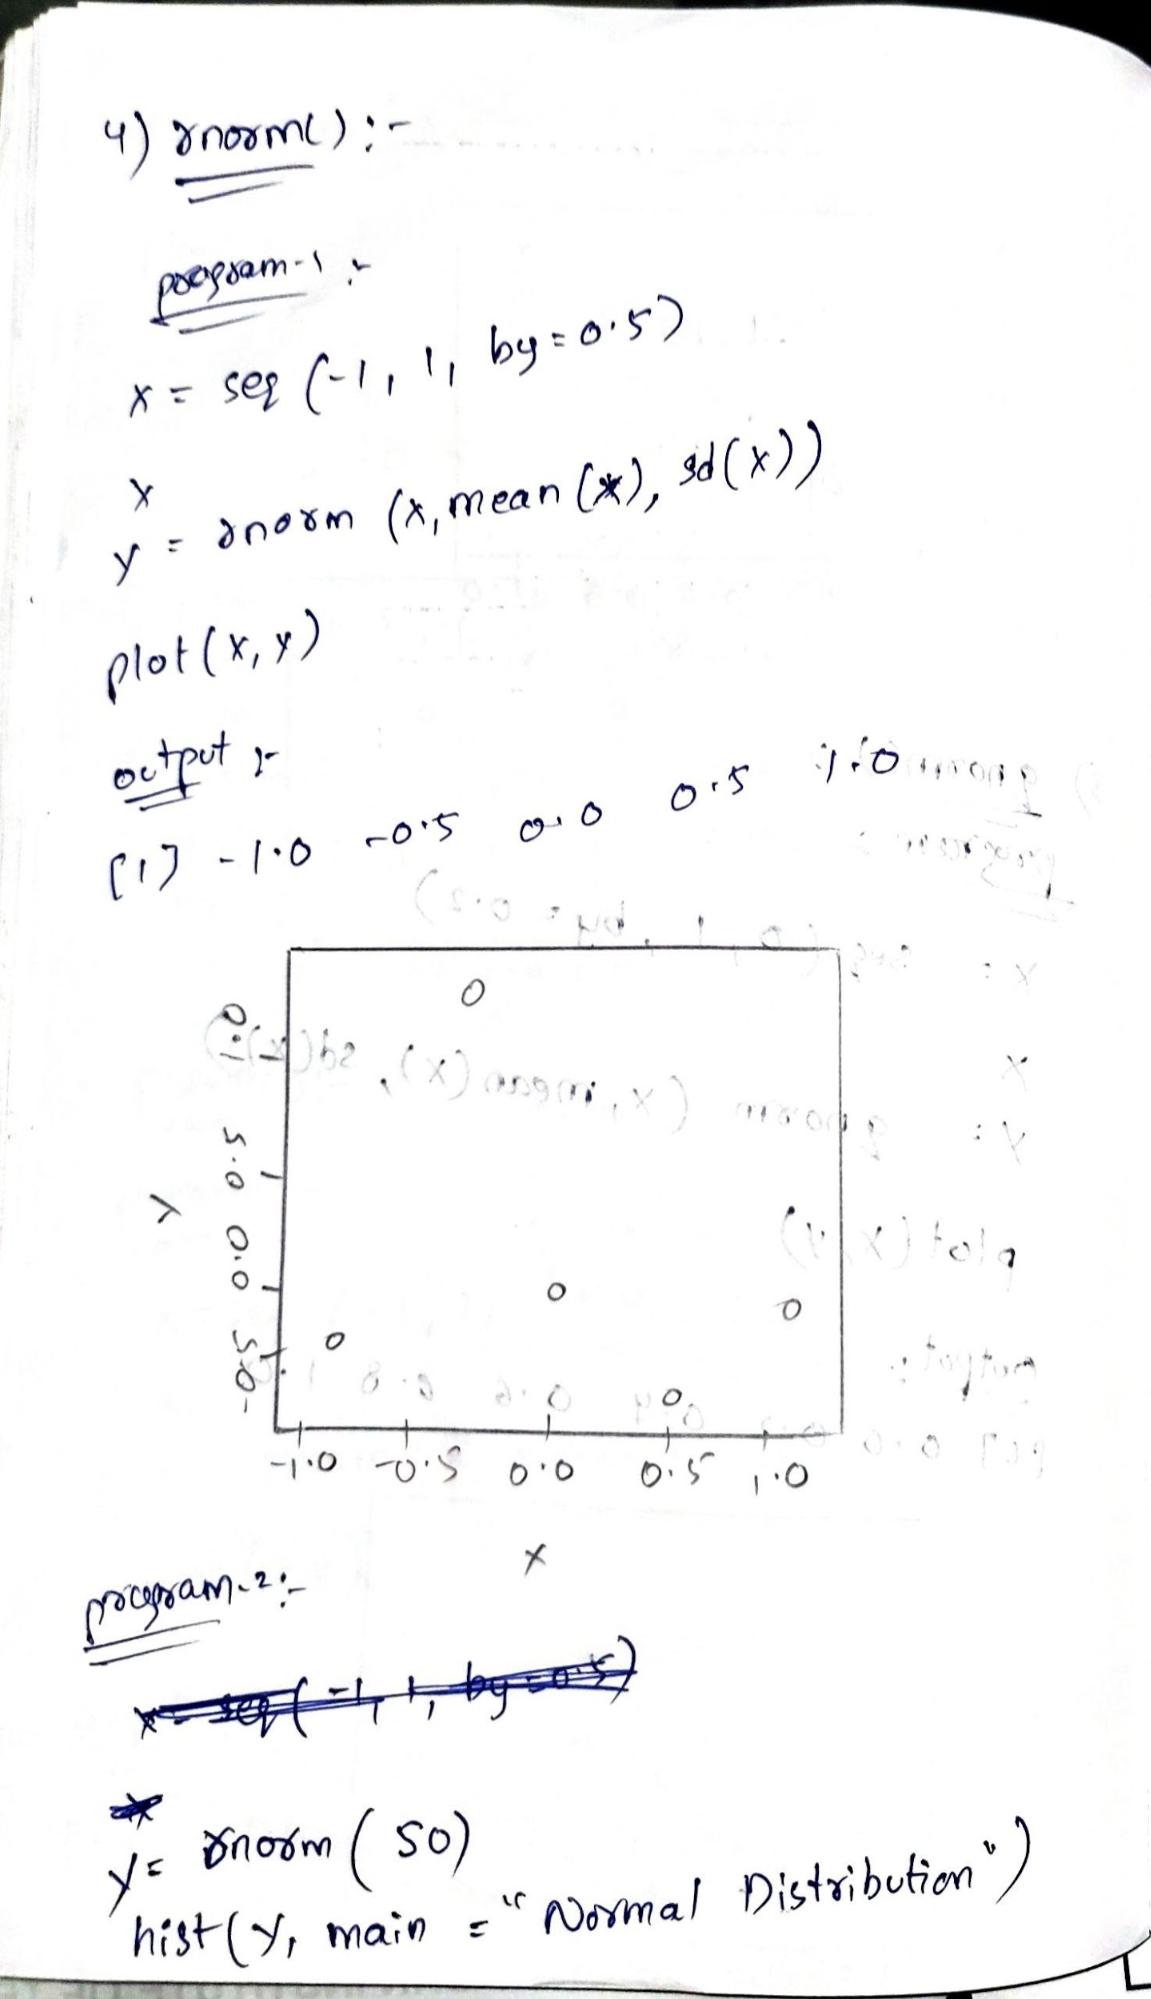 4) rnorm() :-
program-1 :-
x = seq (-1, 1, by = 0.5)
x
y = rnorm (x, mean (x), sd(x))
plot (x, y)
output :-
[1] -1.0 -0.5 0.0 0.5 1.0
1.0
0.5
0.0
-0.5
y
-1.0 -0.5 0.0 0.5 1.0
x
program-2 :-
x = seq (-1, 1, by = 0.5)
y = rnorm (50)
hist (y, main = "Normal Distribution")